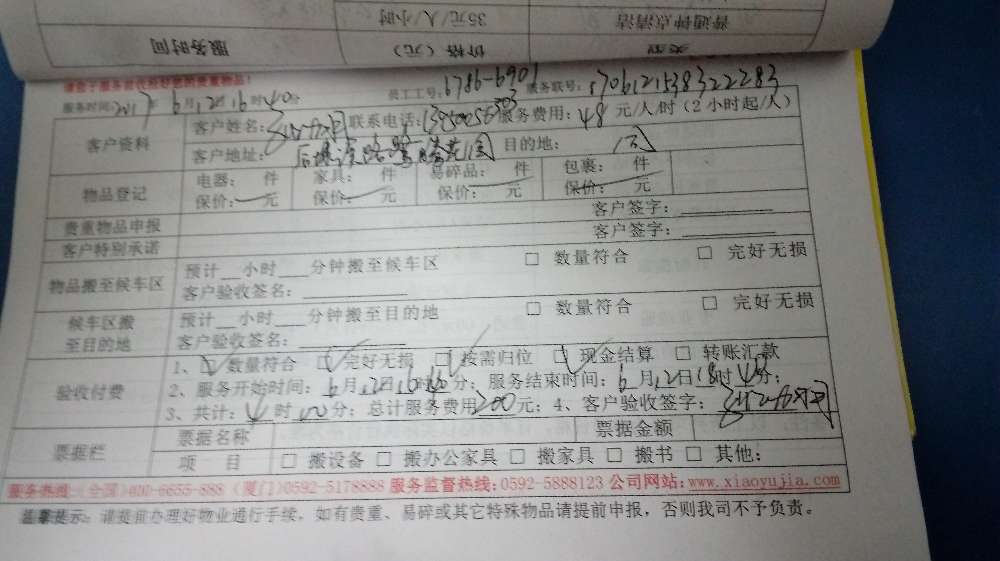 普通钟点清洁 35元/人/小时
类型 价格（元） 服务时间
请您于服务前收拾好您的贵重物品！
服务时间：2017年6月12日16时40分 员工工号：6786-6901 服务联号：
客户资料 客户姓名： 联系电话： 服务费用：48元/人/时（2小时起/人）
客户地址： 目的地：
物品登记 电器： 件 家具： 件 易碎品： 件 包裹： 件
保价： 元 保价： 元 保价： 元 保价： 元
贵重物品申报 客户签字：
客户特别承诺 客户签字：
物品搬至候车区 预计__小时___分钟搬至候车区 □ 数量符合 □ 完好无损
客户验收签名：
候车区搬至目的地 预计__小时___分钟搬至目的地 □ 数量符合 □ 完好无损
客户验收签名：
验收付费 1、□ 数量符合 □ 完好无损 □ 按需归位 □ 现金结算 □ 转账汇款
2、服务开始时间：6月12日16时40分；服务结束时间：6月12日18时40分；
3、共计：4时00分；总计服务费用200元；4、客户验收签字：
票据栏 票据名称 票据金额
项 目 □ 搬设备 □ 搬办公家具 □ 搬家具 □ 搬书 □ 其他：
服务热线：（全国）400-6655-888（厦门）0592-5178888 服务监督热线：0592-5888123 公司网站：www.xiaoyujia.com
温馨提示：请提前办理好物业通行手续，如有贵重、易碎或其它特殊物品请提前申报，否则我司不予负责。